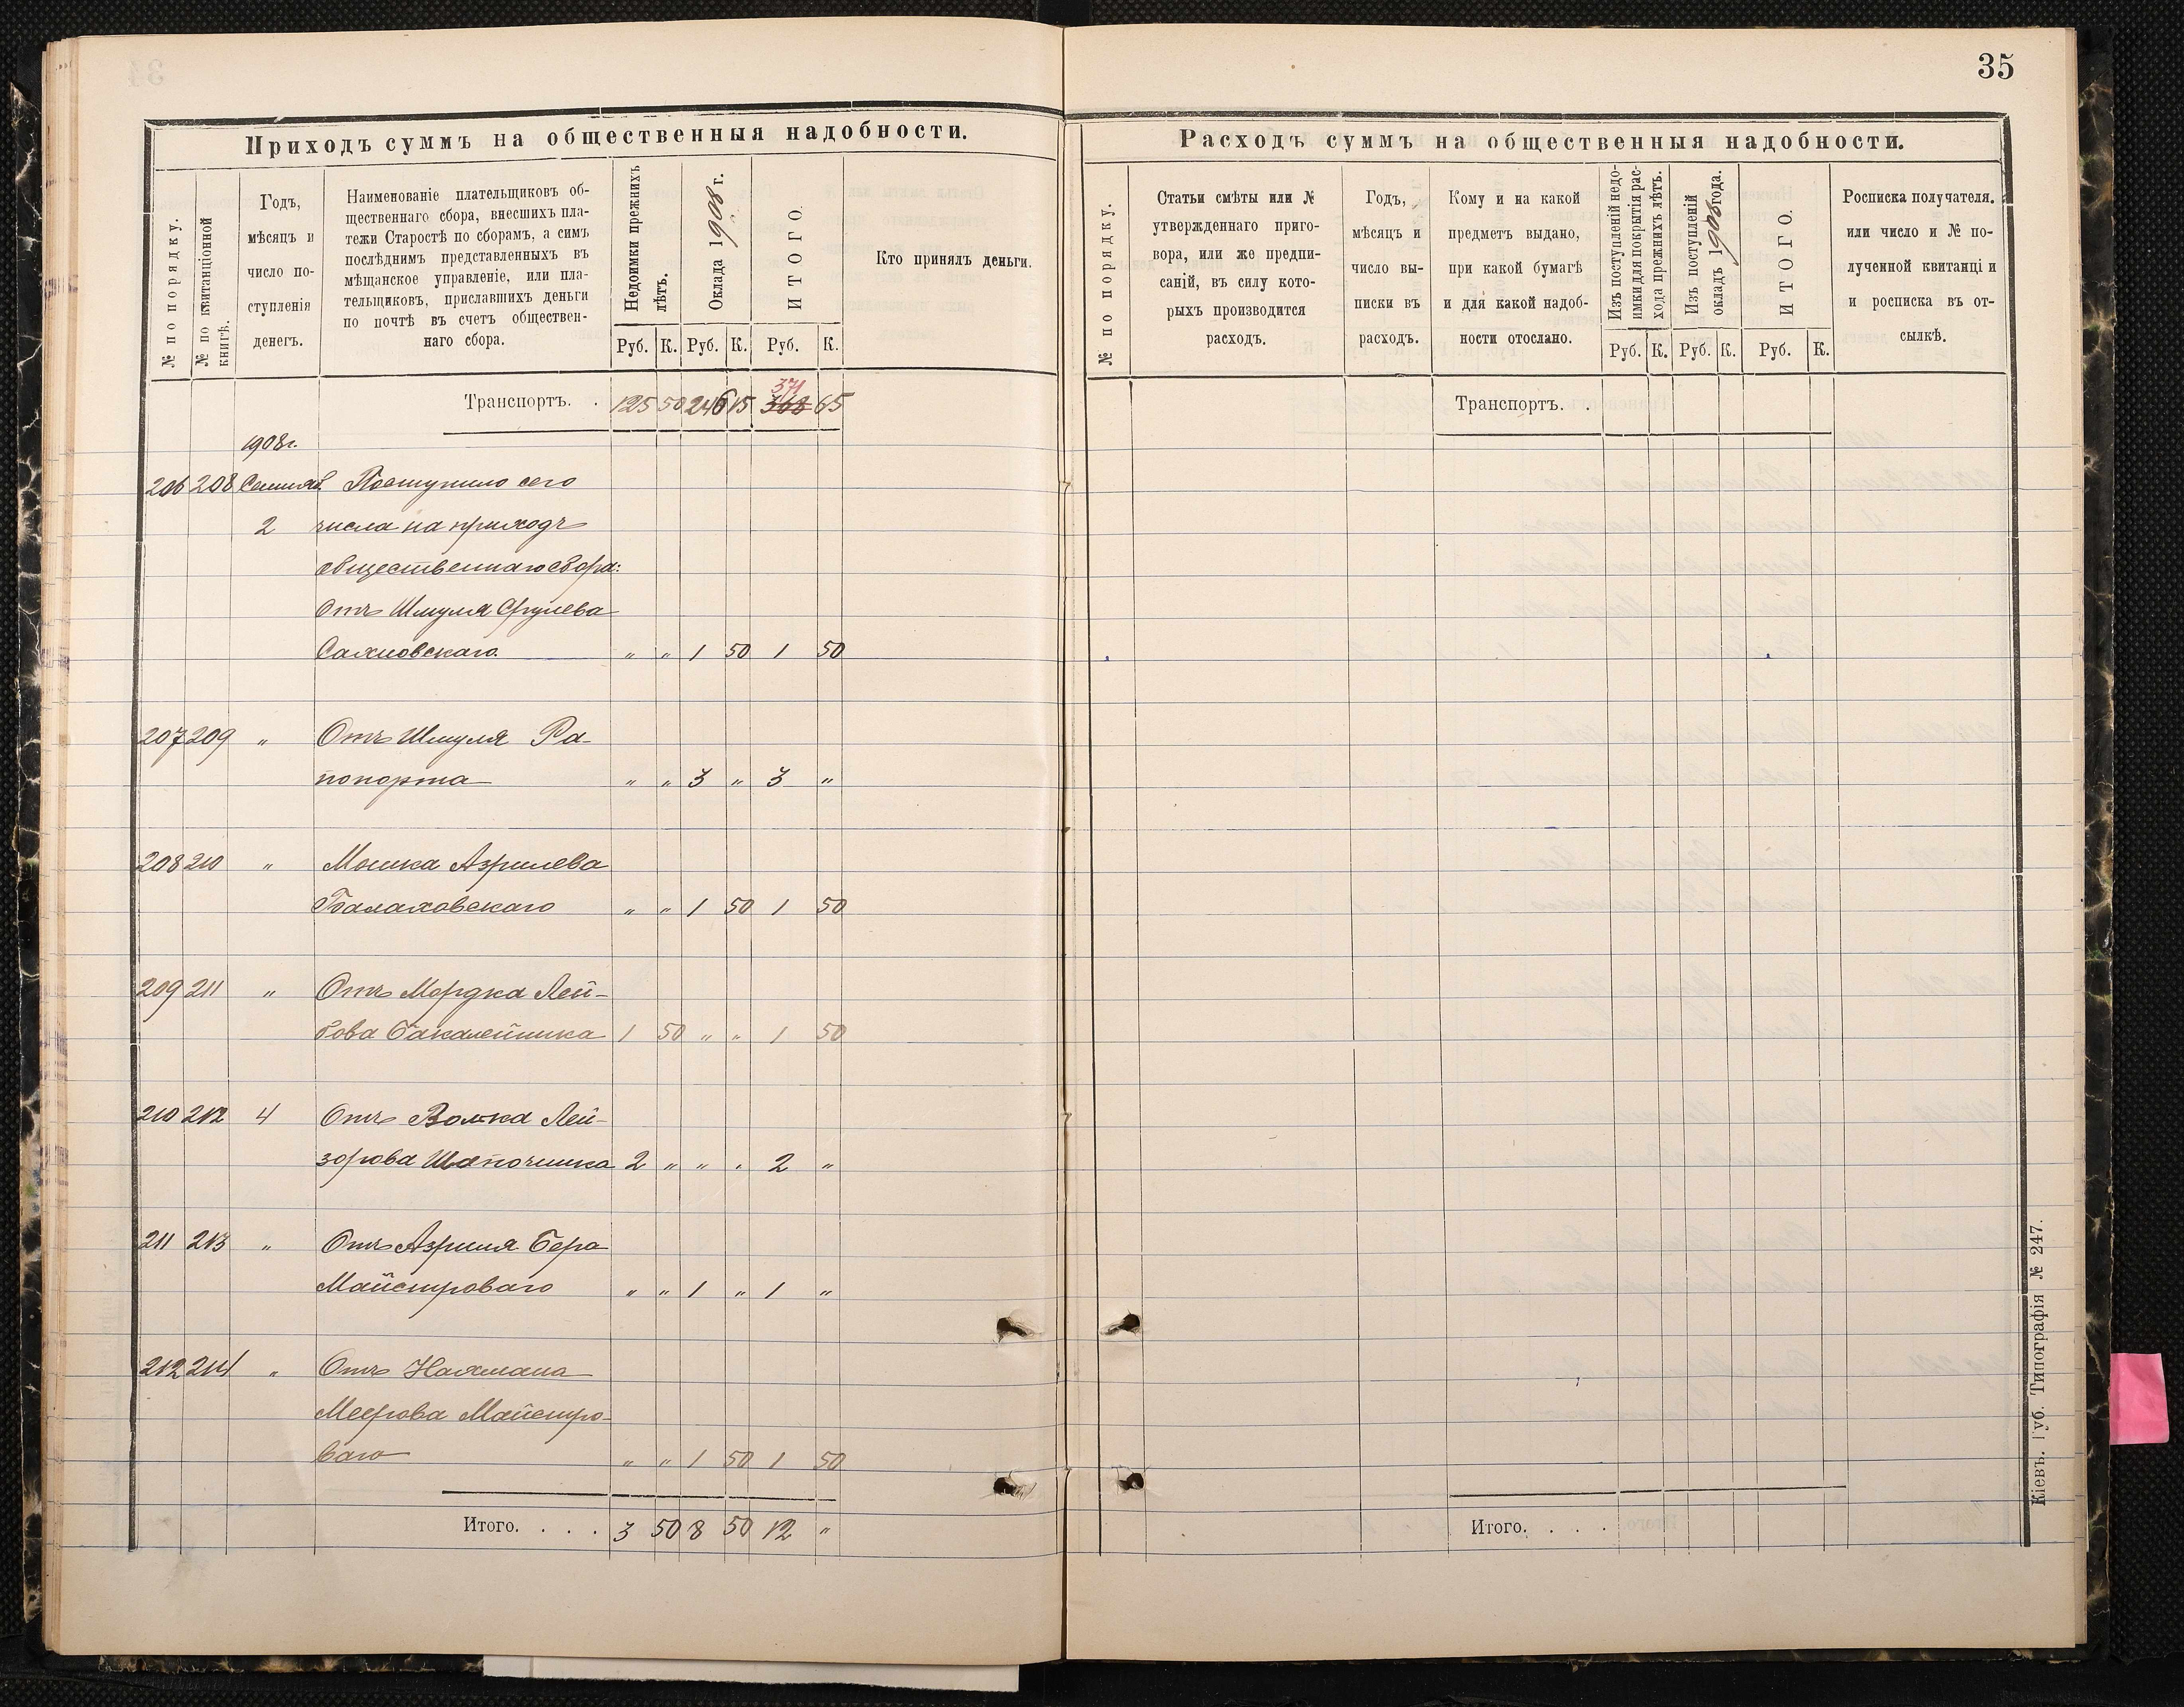 35
Приходъ суммъ на общественныя надобности.
№ по порядку.
№ по квитанціонной книгѣ.
Годъ, мѣсяцъ и число поступленія денегъ.
Наименованіе плательщиковъ об-
щественнаго сбора, внесшихъ пла-
тежи Старостѣ по сборамъ, а симъ
послѣднимъ представленныхъ въ
мѣщанское управленіе, или пла-
тельщиковъ, приславшихъ деньги
по почтѣ въ счетъ обществен-
наго сбора.
Недоимки прежнихъ лѣтъ.
Оклада 1908 г.
ИТОГО.
Кто принялъ деньги.
Руб. К. Руб. К. Руб. К.
371
Транспортъ. . 125 50 246 15 368 65
1908 г.
206 208 Сентяб. Поступило сего
2 числа на приходъ
общественнаго сбора:
Отъ Шмуля Срулева
Сахновскаго " " 1 50 1 50
207 209 " Отъ Шмуля Ра-
попорта " " 3 " 3 "
208 210 " Мошка Азрилева
Балаховскаго " " 1 50 1 50
209 211 " Отъ Мордка Лей-
бова Бакалейника 1 50 " " 1 50
210 212 4 Отъ Волька Лей-
зорова Шапочника 2 " " " 2 "
211 213 " Отъ Азриля Бера
Майстроваго " " 1 " 1 "
212 214 " Отъ Нахмана
Меерова Майстро-
ваго " " 1 50 1 50
Итого. . . . 3 50 8 50 12 "
Расходъ суммъ на общественныя надобности.
№ по порядку.
Статьи смѣты или №
утвержденнаго приго-
вора, или же предпи-
саній, въ силу кото-
рыхъ производится
расходъ.
Годъ,
мѣсяцъ и
число вы-
писки въ
расходъ.
Кому и на какой
предметъ выдано,
при какой бумагѣ
и для какой надоб-
ности отослано.
Изъ поступленій недо-
имки для покрытія рас-
хода прежнихъ лѣтъ.
Изъ поступленій
окладъ 1908 года.
ИТОГО.
Росписка получателя.
или число и № по-
лученной квитанці и
и росписка въ от-
сылкѣ.
Руб. К. Руб. К. Руб. К.
Транспортъ. .
Итого. . . .
Кіевъ. Губ. Типографія № 247.